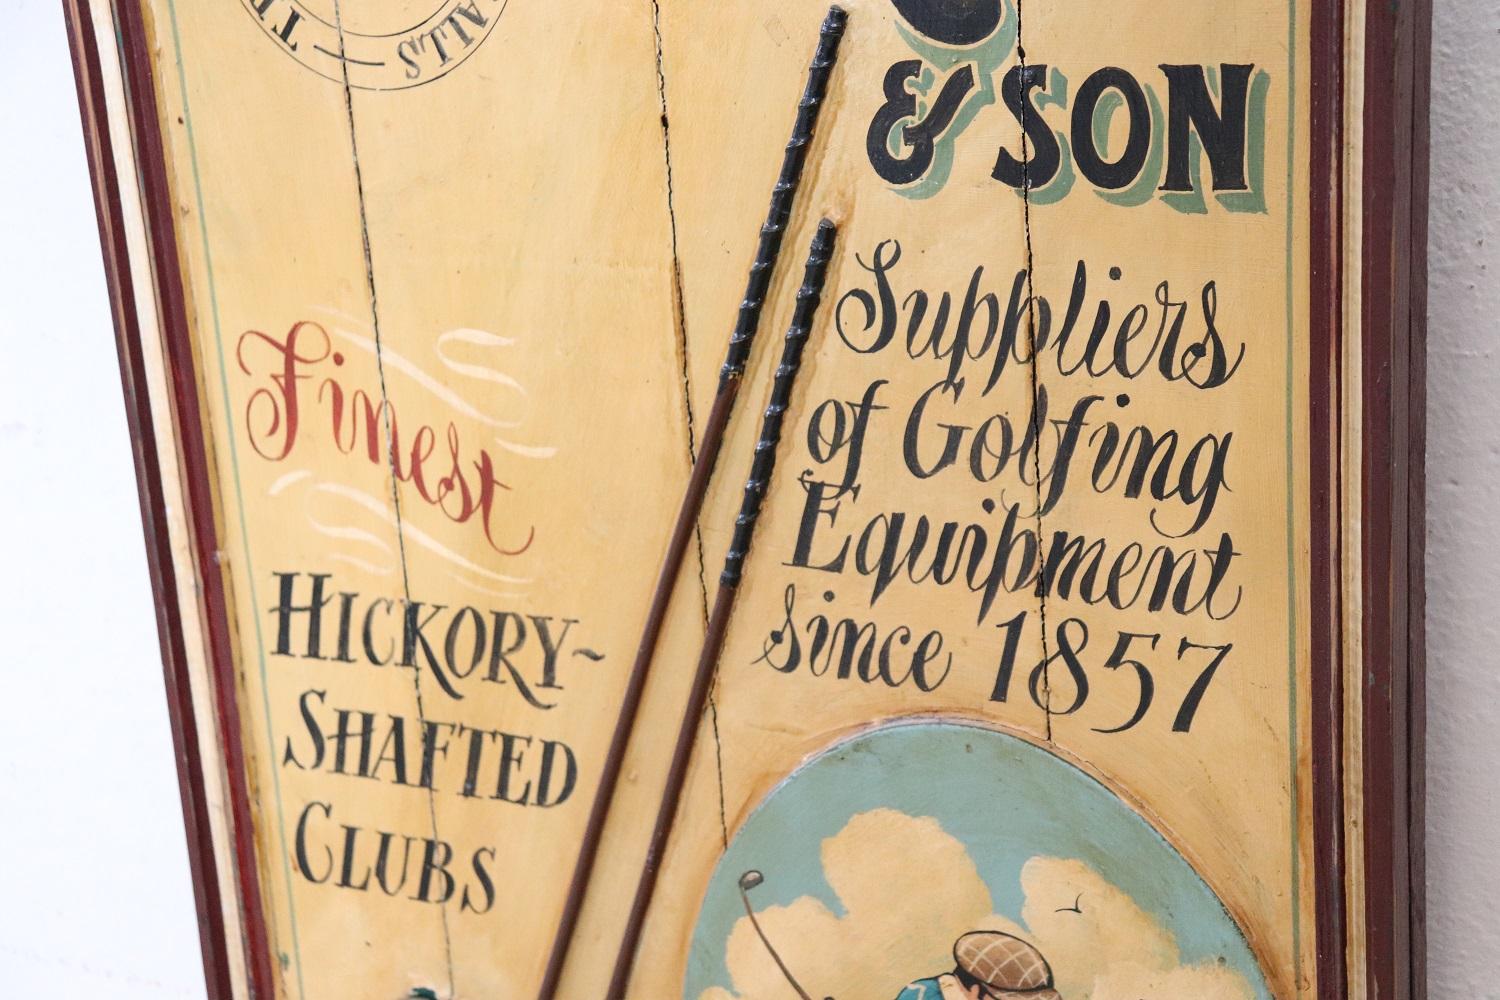 & SON
Suppliers
of Golfing
Equipment
since 1857
Finest
HICKORY~
SHAFTED
CLUBS